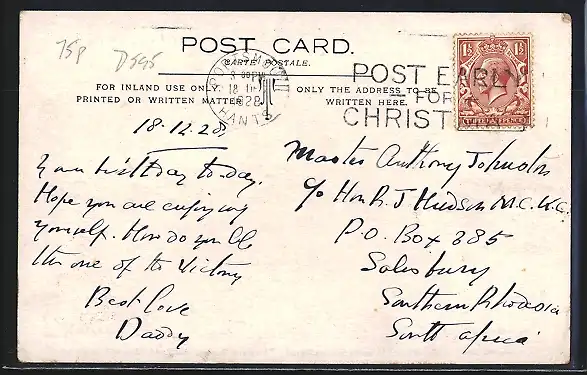 75p D595
POST CARD.
CARTE POSTALE.
FOR INLAND USE ONLY.
PRINTED OR WRITTEN MATTER
ONLY THE ADDRESS TO BE
WRITTEN HERE.
PORTSMOUTH
18
1928
HANTS
POST EARLY
FOR
CHRIST
1½ 1½
18.12.28
Your birthday to-day.
Hope you are enjoying
yourself. How do you like
this one of the Victory
Best love
Daddy
Master Anthony Johnston
c/o Hon R. J Hudson M.C. K.C.
P.O. Box 385
Salisbury
Southern Rhodesia
South Africa